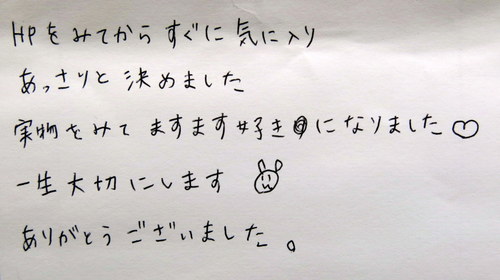 HPをみてからすぐに気に入り
あっさりと決めました
実物をみてますます好きになりました♡
一生大切にします
ありがとうございました。